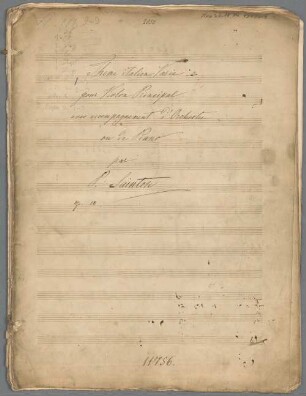 Thème Italien Varié
pour Violon Principal
avec accompagnement d'Orchestre
ou de Piano
par
P. Sainton
op. 10
11756.